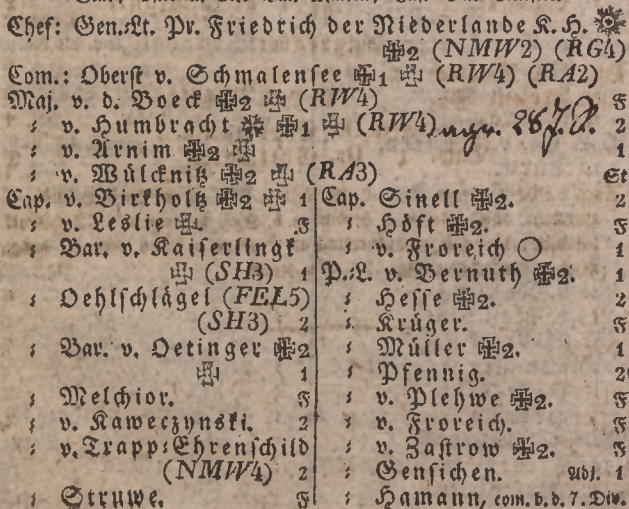 Chef: Gen.Lt. Pr. Friedrich der Niederlande K. H.
✠2 (NMW2) (RG4)
Com.: Oberst v. Schmalensee ✠1 ✠ (RW4) (RA2)
Maj. v. d. Boeck ✠2 ✠ (RW4) F
: v. Humbracht ※ ✠1 ✠ (RW4) agr. 2
: v. Arnim ✠2 ✠ 1
: v. Wülcknitz ✠2 ✠ (RA3) Et
Cap. v. Birkholtz ✠2 ✠ 1
: v. Leslie ✠. F
: Bar. v. Kaiserlingk
✠ (SH3) 1
: Oehlschlägel (FEL5)
(SH3) 2
: Bar. v. Oetinger ✠2
✠ 1
: Melchior. F
: v. Kaweczynski. 2
: v. Trapp-Ehrenschild
(NMW4) 2
: Struwe. F
Cap. Sinell ✠2. 2
: Höft ✠2. F
: v. Froreich ◯ 1
P.-L. v. Bernuth ✠2. 1
: Hesse ✠2. 2
: Krüger. F
: Müller ✠2. 1
: Pfennig. 2
: v. Plehwe ✠2. F
: v. Froreich. F
: v. Zastrow ✠2. F
: Gensichen. Adj. 1
: Hamann, com. b. d. 7. Div.